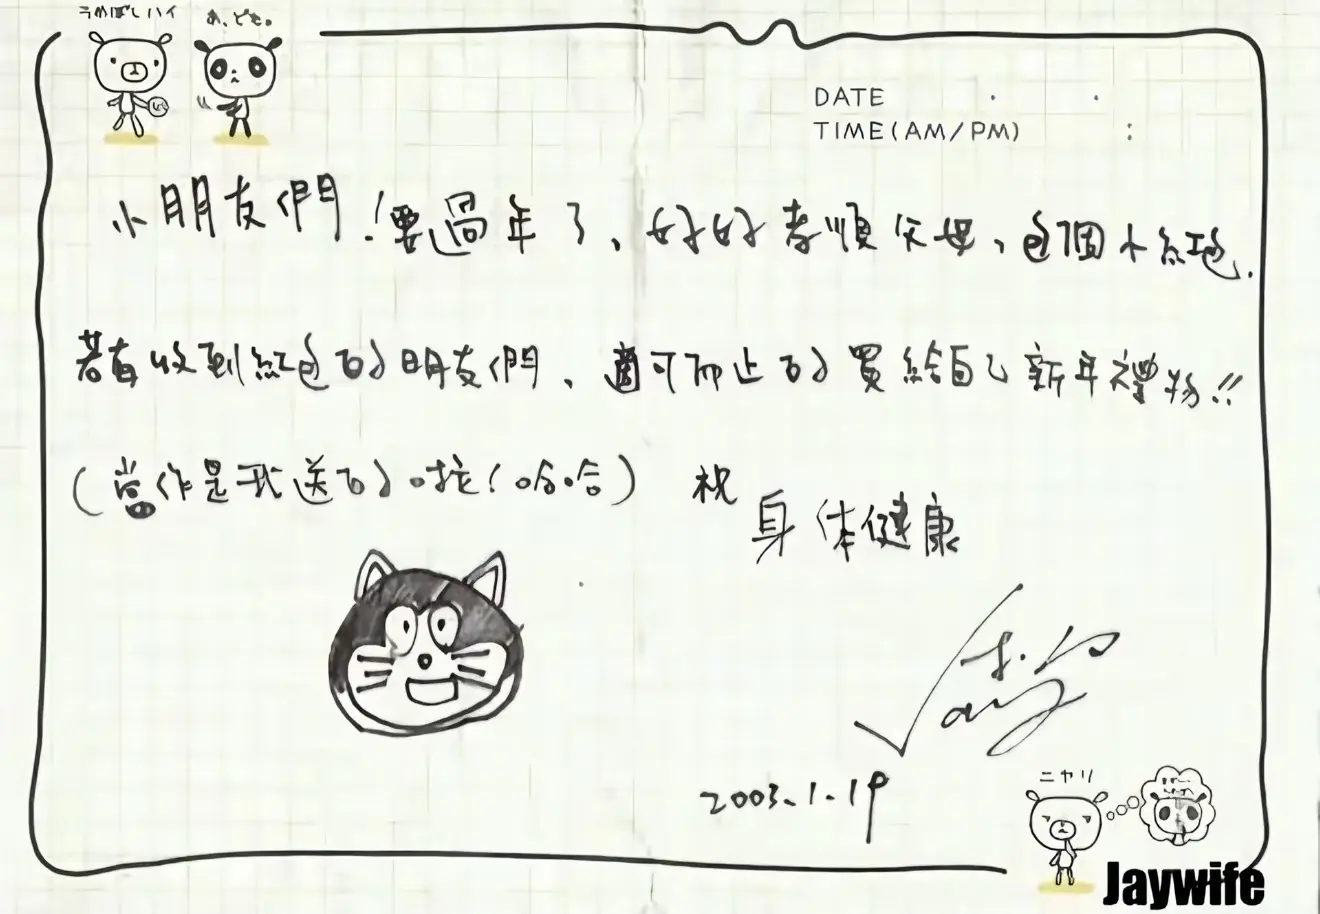 うめぼしハイ
あ、ども。
DATE . .
TIME(AM/PM) :
小朋友們!要過年了、好好孝順父母、包個小紅包.
若有收到紅包的朋友們、適可而止的買給自己新年禮物!!
(當作是我送的啦!哈哈) 祝
身体健康
2003.1.19
ニヤリ
Jaywife